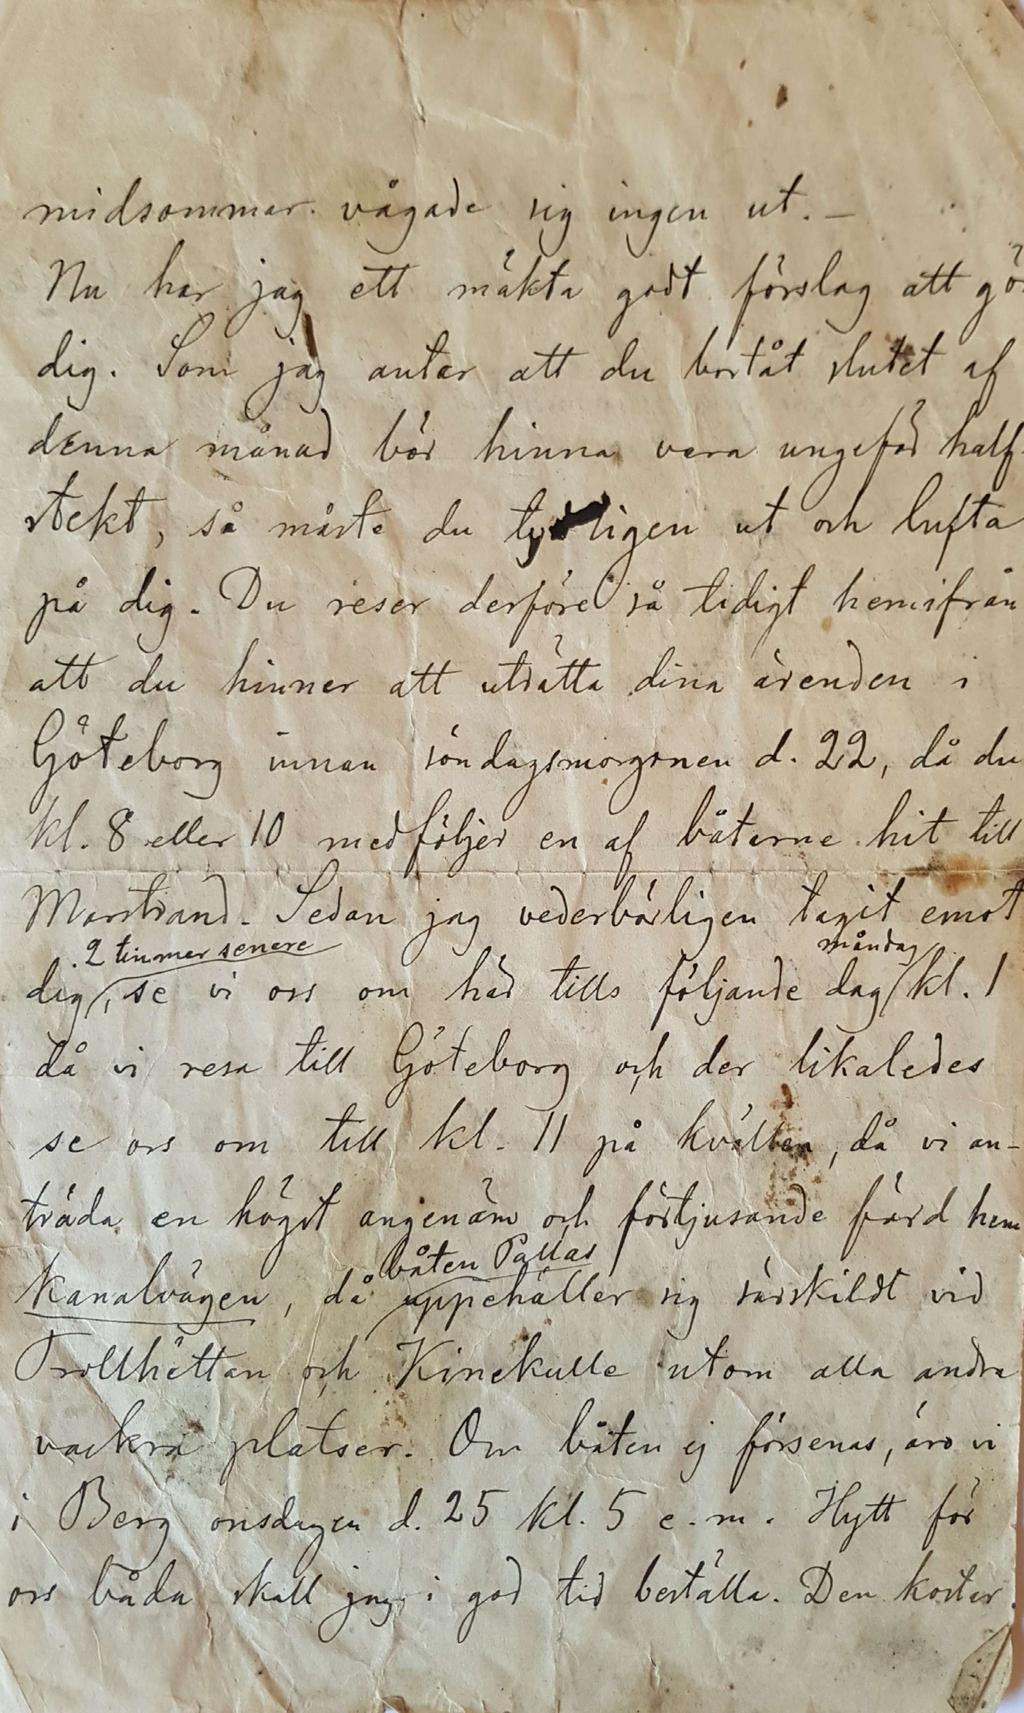 midsommar vågade sig ingen ut. –
Nu har jag ett mäkta godt förslag att gö
dig. Som jag antar att du bortåt slutet af
denna månad bör hinna vara ungefär half-
stekt, så måste du tydligen ut och lufta
på dig. Du reser derföre så tidigt hemifrån
att du hinner att uträtta dina ärenden i
Göteborg innan söndagsmorgonen d. 22, då du
kl. 8 eller 10 medföljer en af båtarne hit till
Marstrand. Sedan jag vederbörligen tagit emot
2 timmar senare måndag
dig, se vi oss om här tills följande dag kl. 1
då vi resa till Göteborg och der likaledes
se oss om till kl. 11 på kvällen, då vi an-
träda en högst angenäm och förtjusande färd hem
båten Pallas
kanalvägen, då uppehåller sig särskildt vid
Trollhättan och Kinekulle utom alla andra
vackra platser. Om båten ej försenas, äro vi
i Berg onsdagen d. 25 kl. 5 e.m. Hytt för
oss båda skall jag i god tid beställa. Den kostar